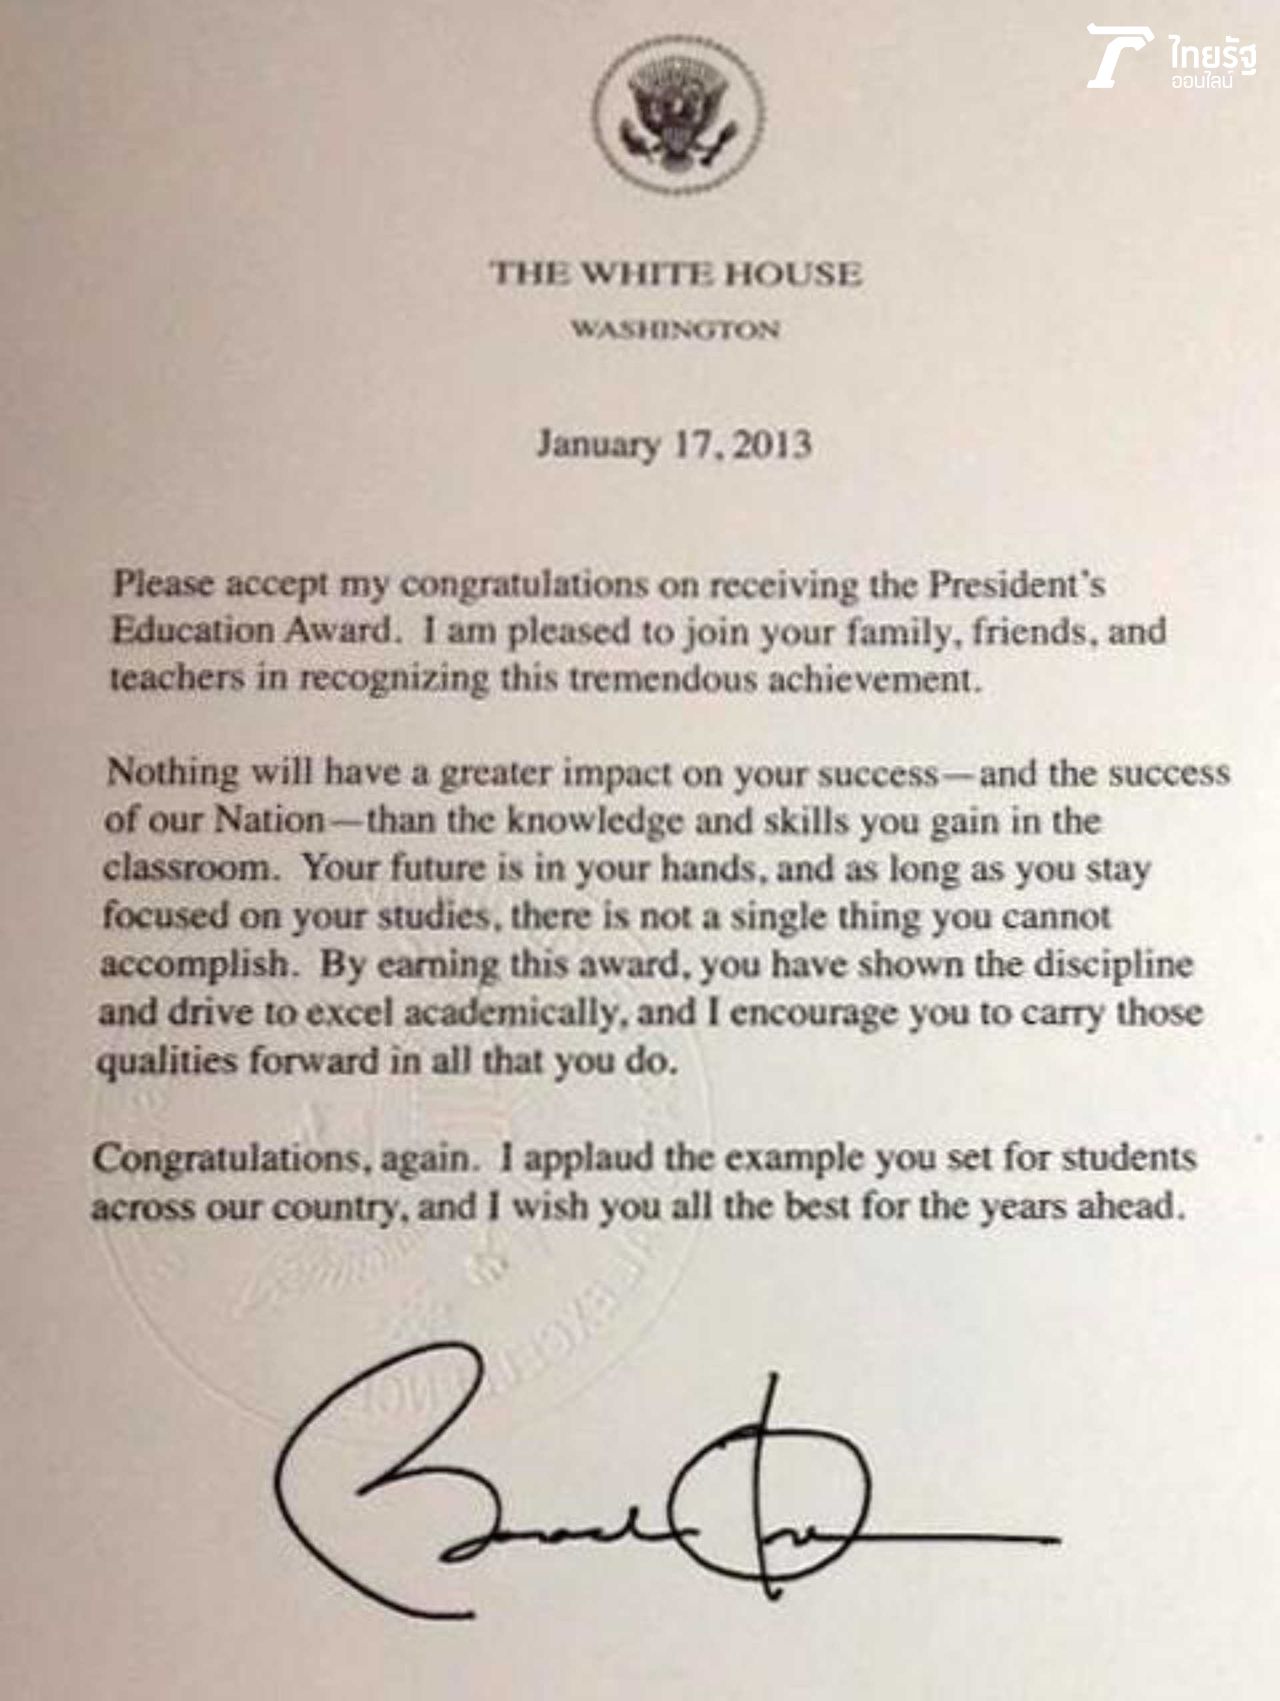 ไทยรัฐ
ออนไลน์
THE WHITE HOUSE
WASHINGTON
January 17, 2013
Please accept my congratulations on receiving the President's
Education Award. I am pleased to join your family, friends, and
teachers in recognizing this tremendous achievement.
Nothing will have a greater impact on your success—and the success
of our Nation—than the knowledge and skills you gain in the
classroom. Your future is in your hands, and as long as you stay
focused on your studies, there is not a single thing you cannot
accomplish. By earning this award, you have shown the discipline
and drive to excel academically, and I encourage you to carry those
qualities forward in all that you do.
Congratulations, again. I applaud the example you set for students
across our country, and I wish you all the best for the years ahead.